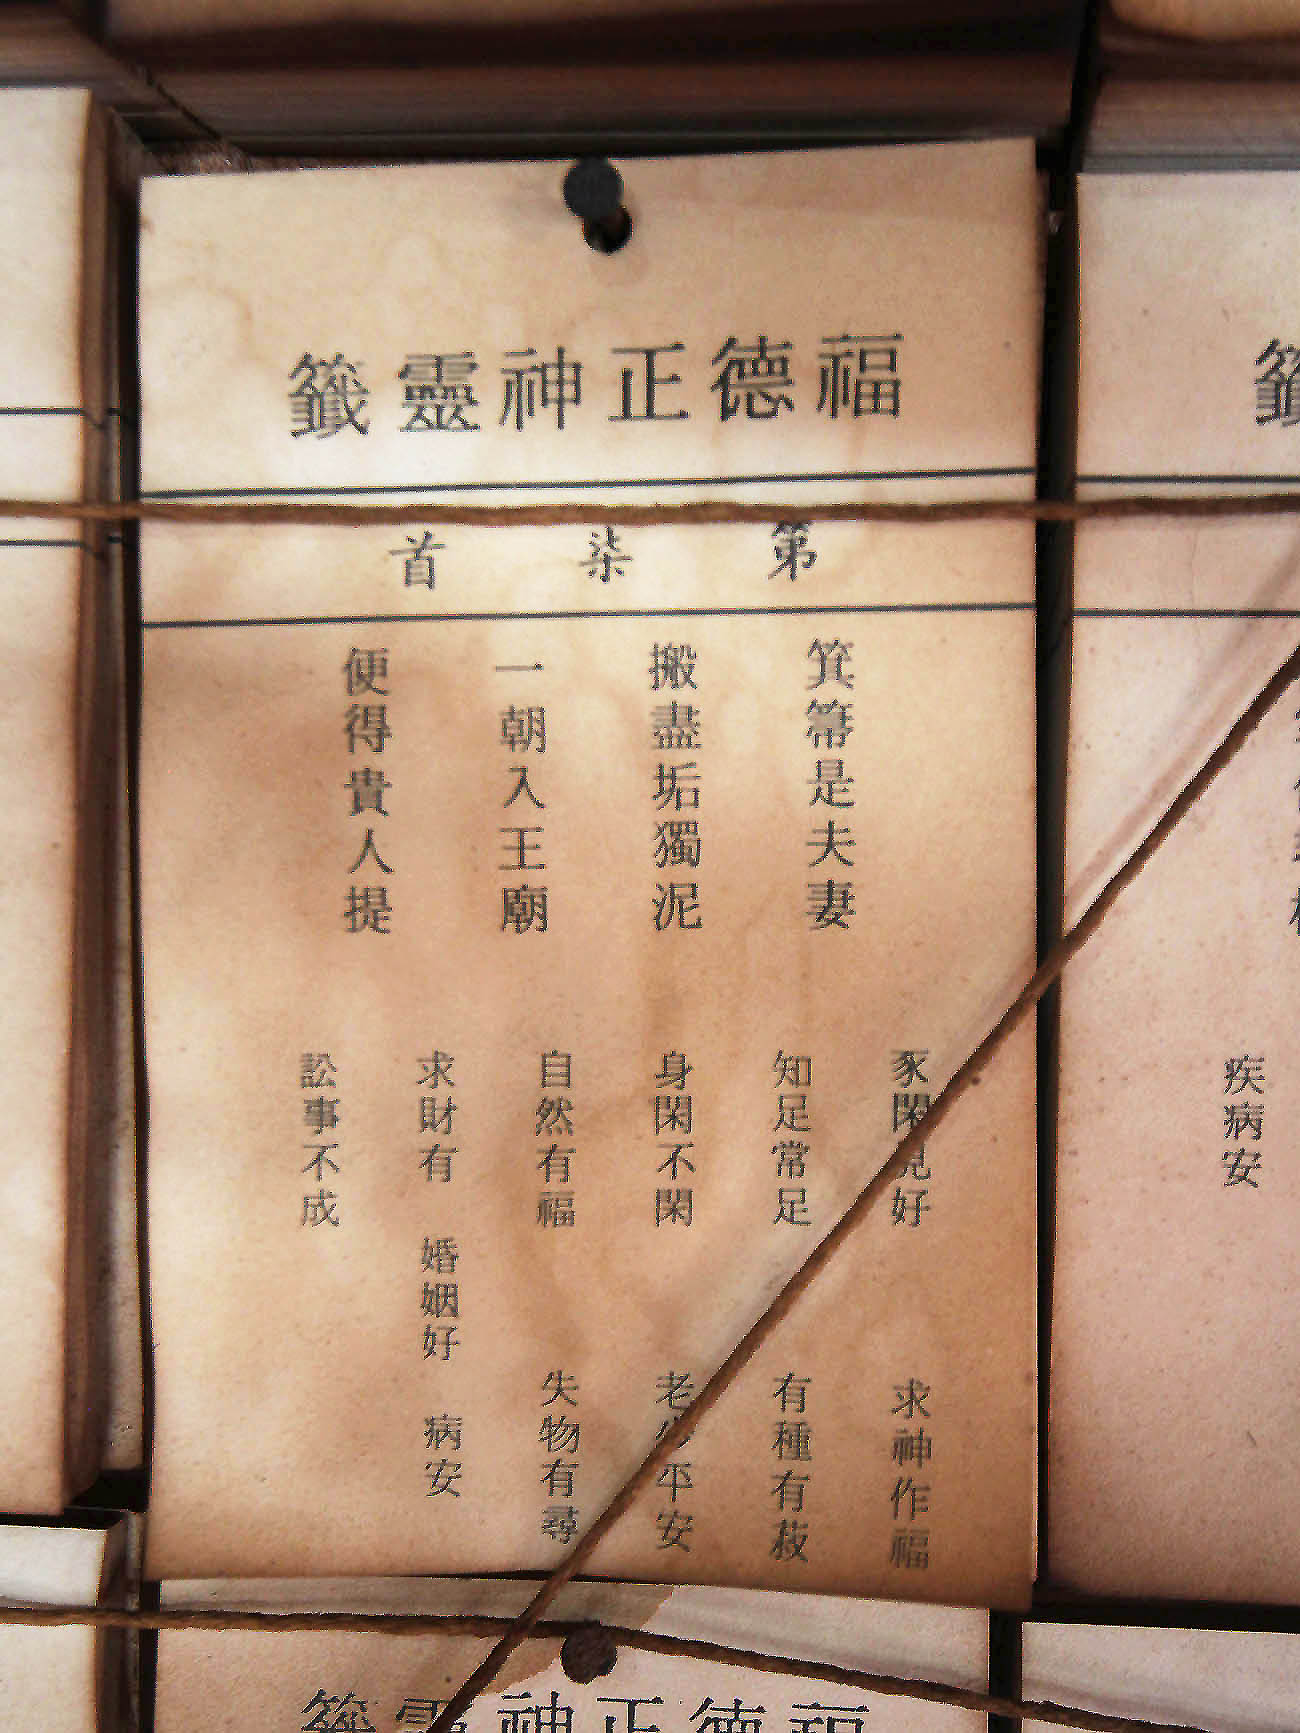 福德正神靈籤
第柒首
箕箒是夫妻
搬盡垢獨泥
一朝入王廟
便得貴人提
豕閑見好
知足常足
身閑不閑
自然有福
求財有 婚姻好 病安
訟事不成
求神作福
有種有蔱
老少平安
失物有尋
疾病安
籤
福德正神靈籤